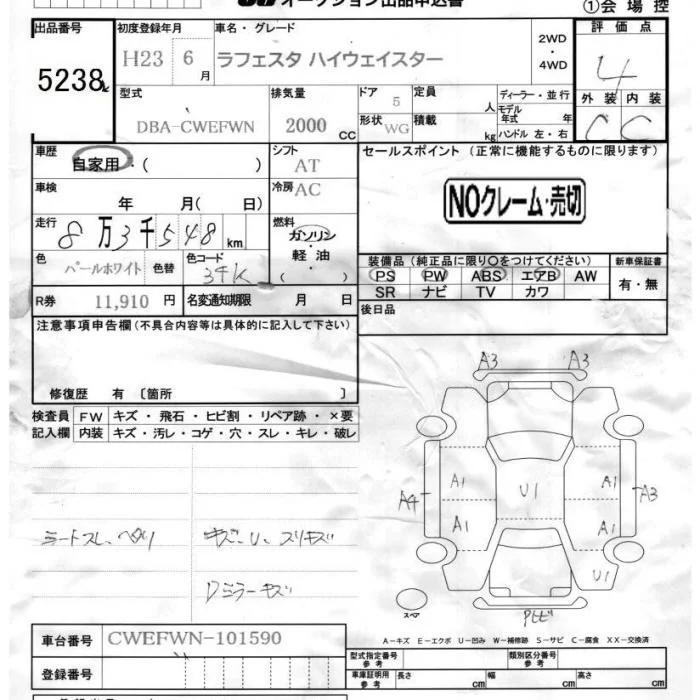 オークション出品申込書
①会場控
出品番号
5238
初度登録年月
H23 6 月
車名・グレード
ラフェスタ ハイウェイスター
2WD
・
4WD
評価点
4
型式
DBA-CWEFWN
排気量
2000 cc
ドア 5
形状 WG
定員 人
積載 kg
ディーラー・並行
モデル年式 年
ハンドル 左・右
外装 内装
C C
車歴
自家用・( )
シフト AT
車検
年 月( 日)
冷房 AC
走行
8万3千548 km
燃料
ガソリン
・
軽油
( )
色
パールホワイト 色替
色コード
34K
R券 11,910 円
名変通知期限 月 日
セールスポイント(正常に機能するものに限ります)
NOクレーム・売切
装備品(純正品に限り○をつけてください)
新車保証書
PS PW ABS エアB AW
有・無
SR ナビ TV カワ
後日品
注意事項申告欄(不具合内容等は具体的に記入して下さい)
修復歴 有 〔箇所 〕
検査員 FW キズ・飛石・ヒビ割・リペア跡・×要
記入欄 内装 キズ・汚レ・コゲ・穴・スレ・キレ・破レ
シートスレ、ヘタリ
キズ、U、スリキズ
Dミラーキズ
A3 A3
A1 A1
A4 U1 A3
A1 A1
U1
スペア
車台番号 CWEFWN-101590
登録番号
A-キズ E-エクボ U-凹み W-補修跡 S-サビ C-腐食 XX-交換済
型式指定番号
参考
類別区分番号
参考
車庫証明用
参考
長さ cm 幅 cm 高さ cm